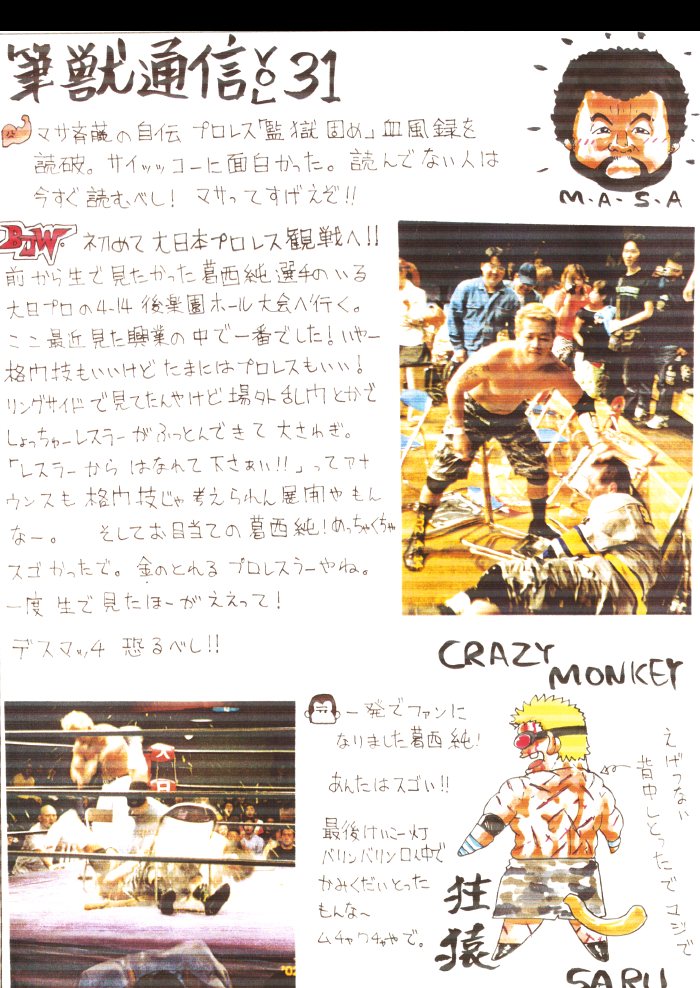 筆獣通信VOL31
マサ斉藤の自伝 プロレス「監獄固め」血風録を
読破。サイッッコーに面白かった。読んでない人は
今すぐ読むべし! マサってすげえぞ!!
M・A・S・A
BJW。初めて大日本プロレス観戦へ!!
前から生で見たかった葛西純選手のいる
大日プロの4-14 後楽園ホール大会へ行く。
ここ最近見た興業の中で一番でした!いやー
格闘技もいいけどたまにはプロレスもいい!
リングサイドで見てたんやけど場外乱闘とかで
しょっちゅーレスラーがふっとんできて大さわぎ。
「レスラーからはなれて下さぁい!!」ってアナ
ウンスも格闘技じゃ考えられん展開やもん
なー。 そしてお目当ての葛西純!めっちゃくちゃ
スゴかったで。金のとれるプロレスラーやね。
一度生で見たほーがええって!
デスマッチ 恐るべし!!
CRAZY
MONKEY
一発でファンに
なりました葛西純!
あんたはスゴい!!
最後けいこー灯
バリンバリン口ん中で
かみくだいとった
もんな〜
ムチャクチャやで。
えげつない
背中しとったでマジで
狂猿
SARU
大日
'02